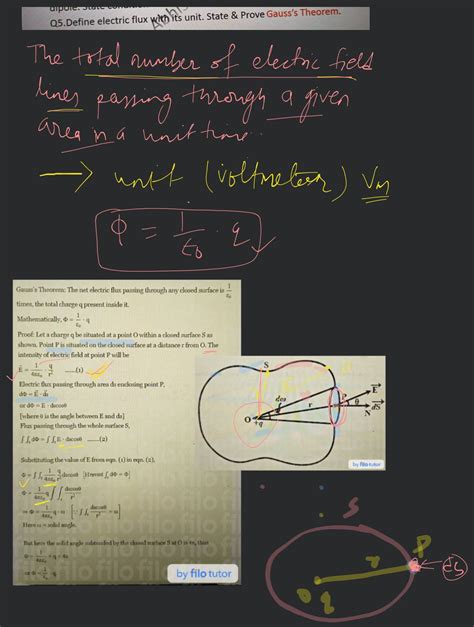 dipole. State
Q5.Define electric flux with its unit. State & Prove Gauss's Theorem.
The total number of electric field
lines passing through a given
area in a unit time.
→ unit (voltmeter) Vm
Φ = 1/ε₀ · q
Gauss's Theorem: The net electric flux passing through any closed surface is 1/ε₀
times, the total charge q present inside it.
Mathematically, Φ = 1/ε₀ · q
Proof: Let a charge q be situated at a point O within a closed surface S as
shown. Point P is situated on the closed surface at a distance r from O. The
intensity of electric field at point P will be
E = 1/4πε₀ q/r² .....(1)
Electric flux passing through area ds enclosing point P,
dΦ = E · ds
or dΦ = E dscosθ
[where θ is the angle between E and ds]
Flux passing through the whole surface S,
∫∫ₛ dΦ = ∫∫ₛ E · dscosθ .......(2)
Substituting the value of E from eqn. (1) in eqn. (2),
Φ = ∫∫ₛ 1/4πε₀ q/r² dscosθ [Hence ∫ₛ dΦ = Φ]
Φ = 1/4πε₀ q ∫∫ dscosθ/r²
or Φ = 1/4πε₀ q·ω [∵ ∫∫ₛ dscosθ/r² = ω]
Here ω = solid angle.
But here the solid angle subtended by the closed surface S at O is 4π, thus
Φ = 1/4πε₀ × q × 4π
or Φ = 1/ε₀ · q
by filo tutor
S
dω
O
+q
r
P
θ
E
N
dS
by filo tutor
S
P
r
O
q
dS